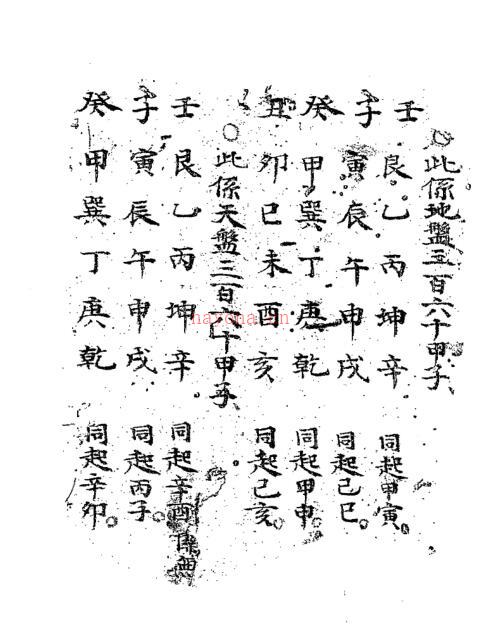 ○此係地盤三百六十甲子
壬艮乙丙坤辛同起甲寅。
子寅辰午申戌同起己巳。
癸甲巽丁庚乾同起甲申
丑卯巳未酉亥同起己亥。
○此係天盤三百六十甲子。
壬艮乙丙坤辛同起辛酉係
子寅辰午申戌同起丙子。
癸甲巽丁庚乾同起辛卯。